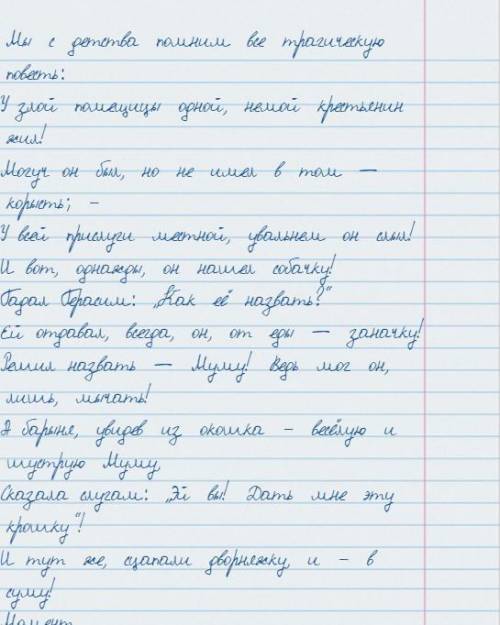 Мы с детства помним все трагическую
повесть:
У злой помещицы одной, немой крестьянин
жил!
Могуч он был, но не имел в том —
корысть; –
У всей прислуги местной, увальнем он слыл!
И вот, однажды, он нашел собачку!
Гадал Герасим: „Как её назвать?"
Ей отдавал, всегда, он, от еды — заначку!
Решил назвать — Муму! Ведь мог он,
лишь, мычать!
А барыня, увидев из окошка – весёлую и
шуструю Муму,
Сказала слугам: „Эй вы! Дать мне эту
крошку"!
И тут же, сцапали дворняжку, и – в
суму!